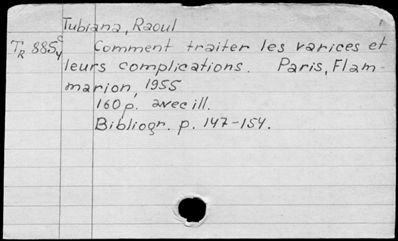 Tubiana, Raoul
TR 885 c4 Comment traiter les varices et
leurs complications. Paris, Flam-
marion, 1955
160 p. avec ill.
Bibliogr. p. 147-154.